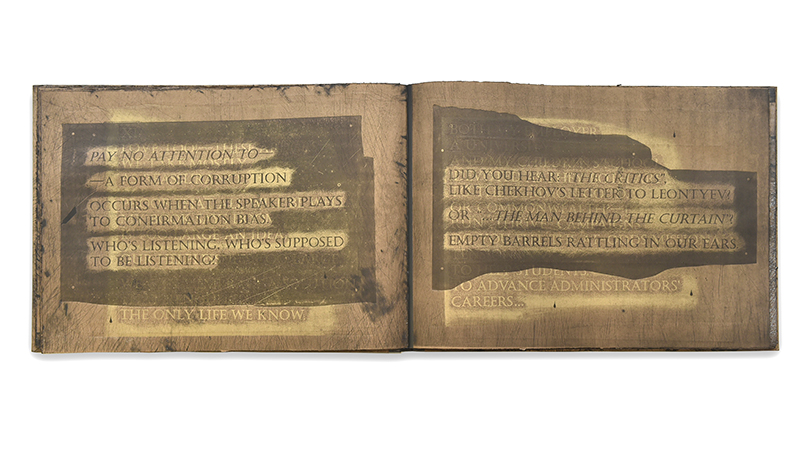 PAY NO ATTENTION TO—
—A FORM OF CORRUPTION
OCCURS WHEN THE SPEAKER PLAYS
TO CONFIRMATION BIAS.
WHO'S LISTENING, WHO'S SUPPOSED
TO BE LISTENING?
THE ONLY LIFE WE KNOW.
DID YOU HEAR: "THE CRITICS"
LIKE CHEKHOV'S LETTER TO
OR "...THE MAN BEHIND THE CURTAIN"?
EMPTY BARRELS RATTLING IN OUR EARS
STUDENTS
TO ADVANCE ADMINISTRATORS'
CAREERS...